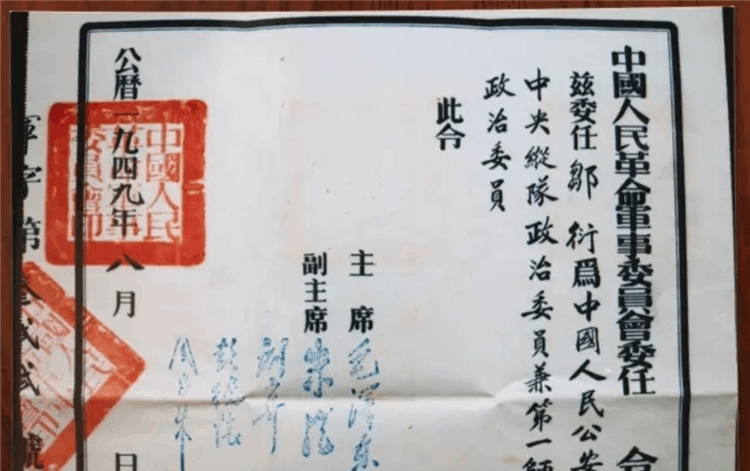 中國人民革命軍事委員會委任 令
兹委任鄒 衍爲中國人民公安
中央縱隊政治委員兼第一師
政治委員
此令
主 席 毛澤东
副主席 朱德
刘少奇
彭德怀
周恩来
公曆一九四九年八月 日
中國人民革命軍事委員會印
軍字第叁貳貳號